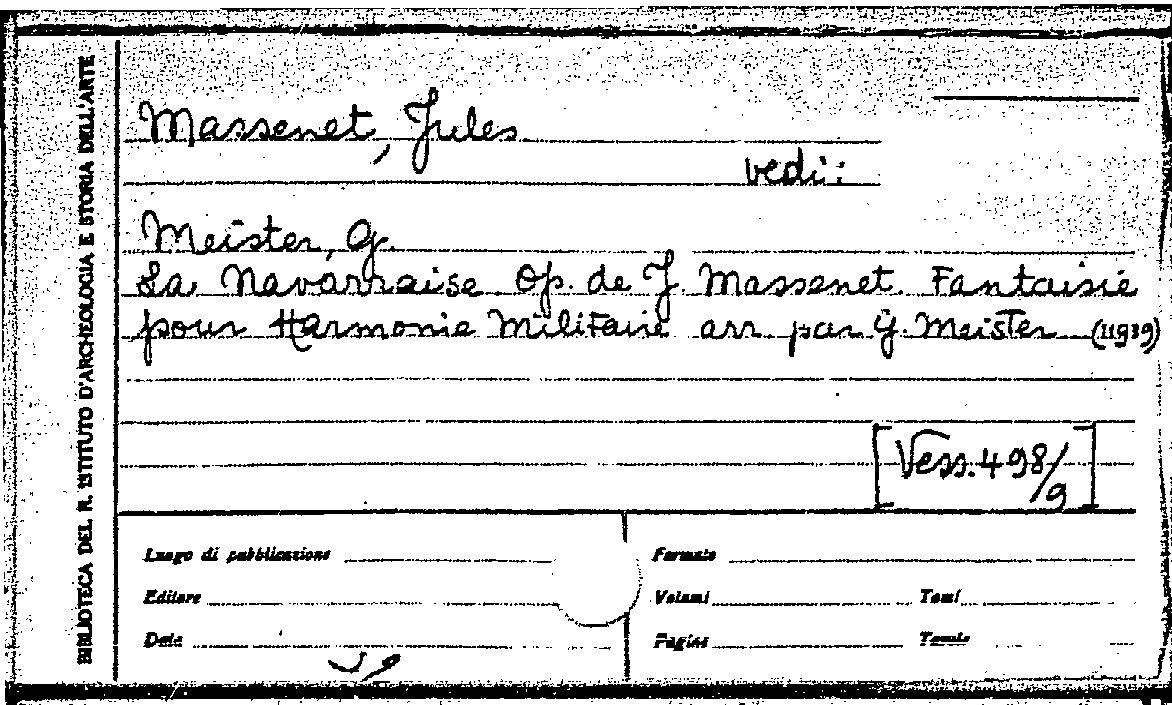 BIBLIOTECA DEL R. ISTITUTO D'ARCHEOLOGIA E STORIA DELL'ARTE
Massenet, Jules
vedi:
Meister, G.
La Navarraise Op. de J. Massenet. Fantaisie
pour Harmonie Militaire arr. par G. Meister (11939)
[Vess. 498/9]
Luogo di pubblicazione
Editore
Data
Formato
Volumi Tomi
Pagine Tavole